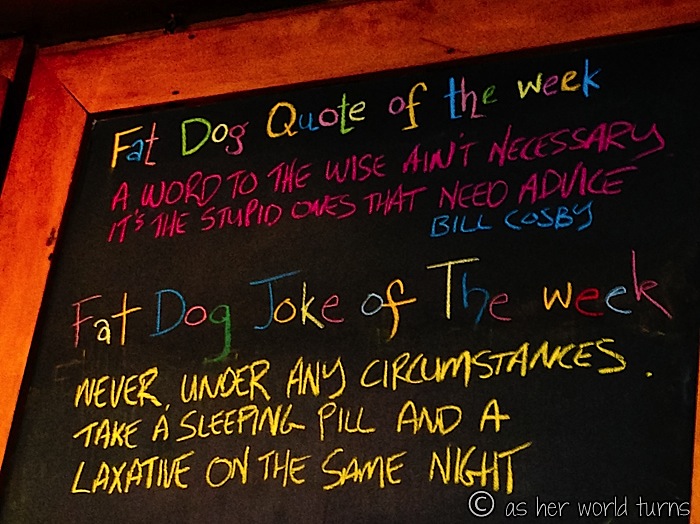 Fat Dog Quote of the week
A WORD TO THE WISE AIN'T NECESSARY
IT'S THE STUPID ONES THAT NEED ADVICE
BILL COSBY
Fat Dog Joke of The week
NEVER, UNDER ANY CIRCUMSTANCES.
TAKE A SLEEPING PILL AND A
LAXATIVE ON THE SAME NIGHT
© as her world turns